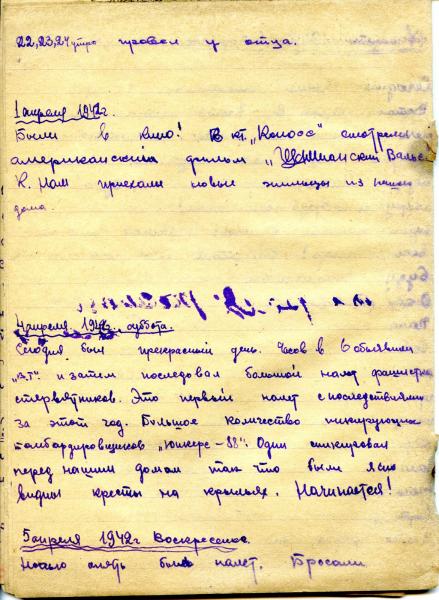 22, 23, 24 утро провел у отца.
1 апреля 1942г.
Были в кино! В кт. „Колосс" смотрели
американский фильм „Шопианский Вальс
К. Нам приехали новые жильцы из нашего
дома.
4 апреля. 1942г. суббота.
Сегодня был прекрасный день. Часов в 6 объявили
„В.Т." и затем последовал большой налет фашистких
стервятников. Это первый налет с последствиями
за этот год. Большое количество пикирующих
бомбардировщиков „Юнкерс-88". Один пикировал
перед нашим домом так что были ясно
видны кресты на крыльях. Начинается!
5 апреля 1942г Воскресенье.
Ночью опять был налет. Бросали